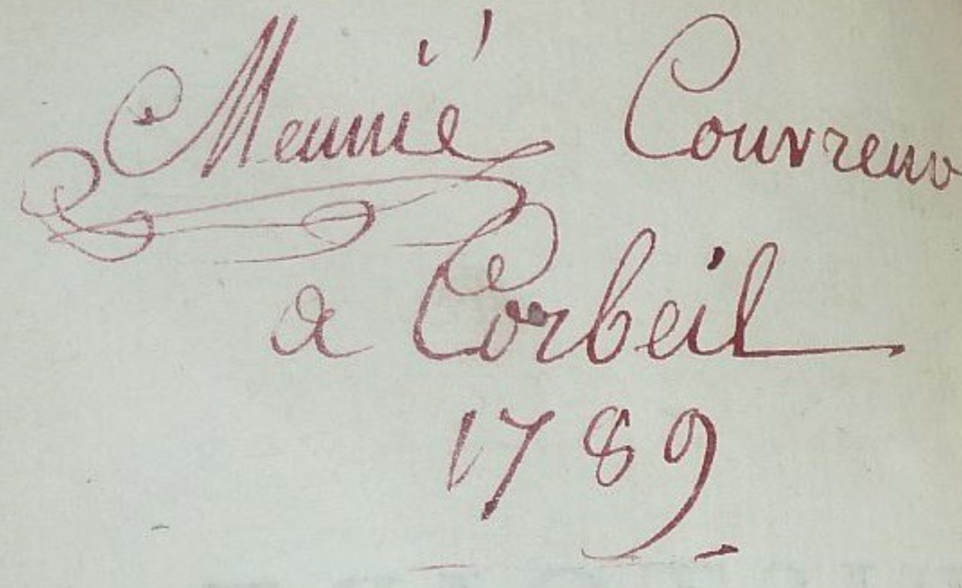 Meunié Couvreur
a Corbeil
1789